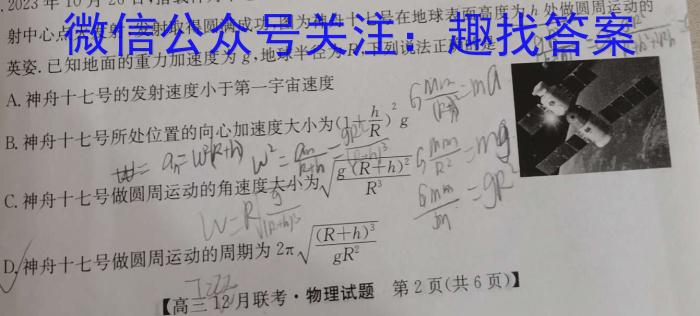 2023 年 10 月 26 日
射中心点火发射,发射取得圆满成功.图为神舟十七号在地球表面高度为 h 处做圆周运动的
微信公众号关注:趣找答案
英姿.已知地面的重力加速度为 g,地球半径为 R,下列说法正确的是
A.神舟十七号的发射速度小于第一宇宙速度
G Mm/(R+h)² = ma
B.神舟十七号所处位置的向心加速度大小为(1+h/R)²g
a_n=ω²(R+h) ω²=a_n/(R+h)
G Mm/R² = mg
C.神舟十七号做圆周运动的角速度大小为√(g(R+h)²/R³)
GMm/m = gR²
W=R√(g/(R+h)³)
D.神舟十七号做圆周运动的周期为 2π√((R+h)³/gR²)
【高三 12月联考·物理试题 第 2 页(共 6 页)】